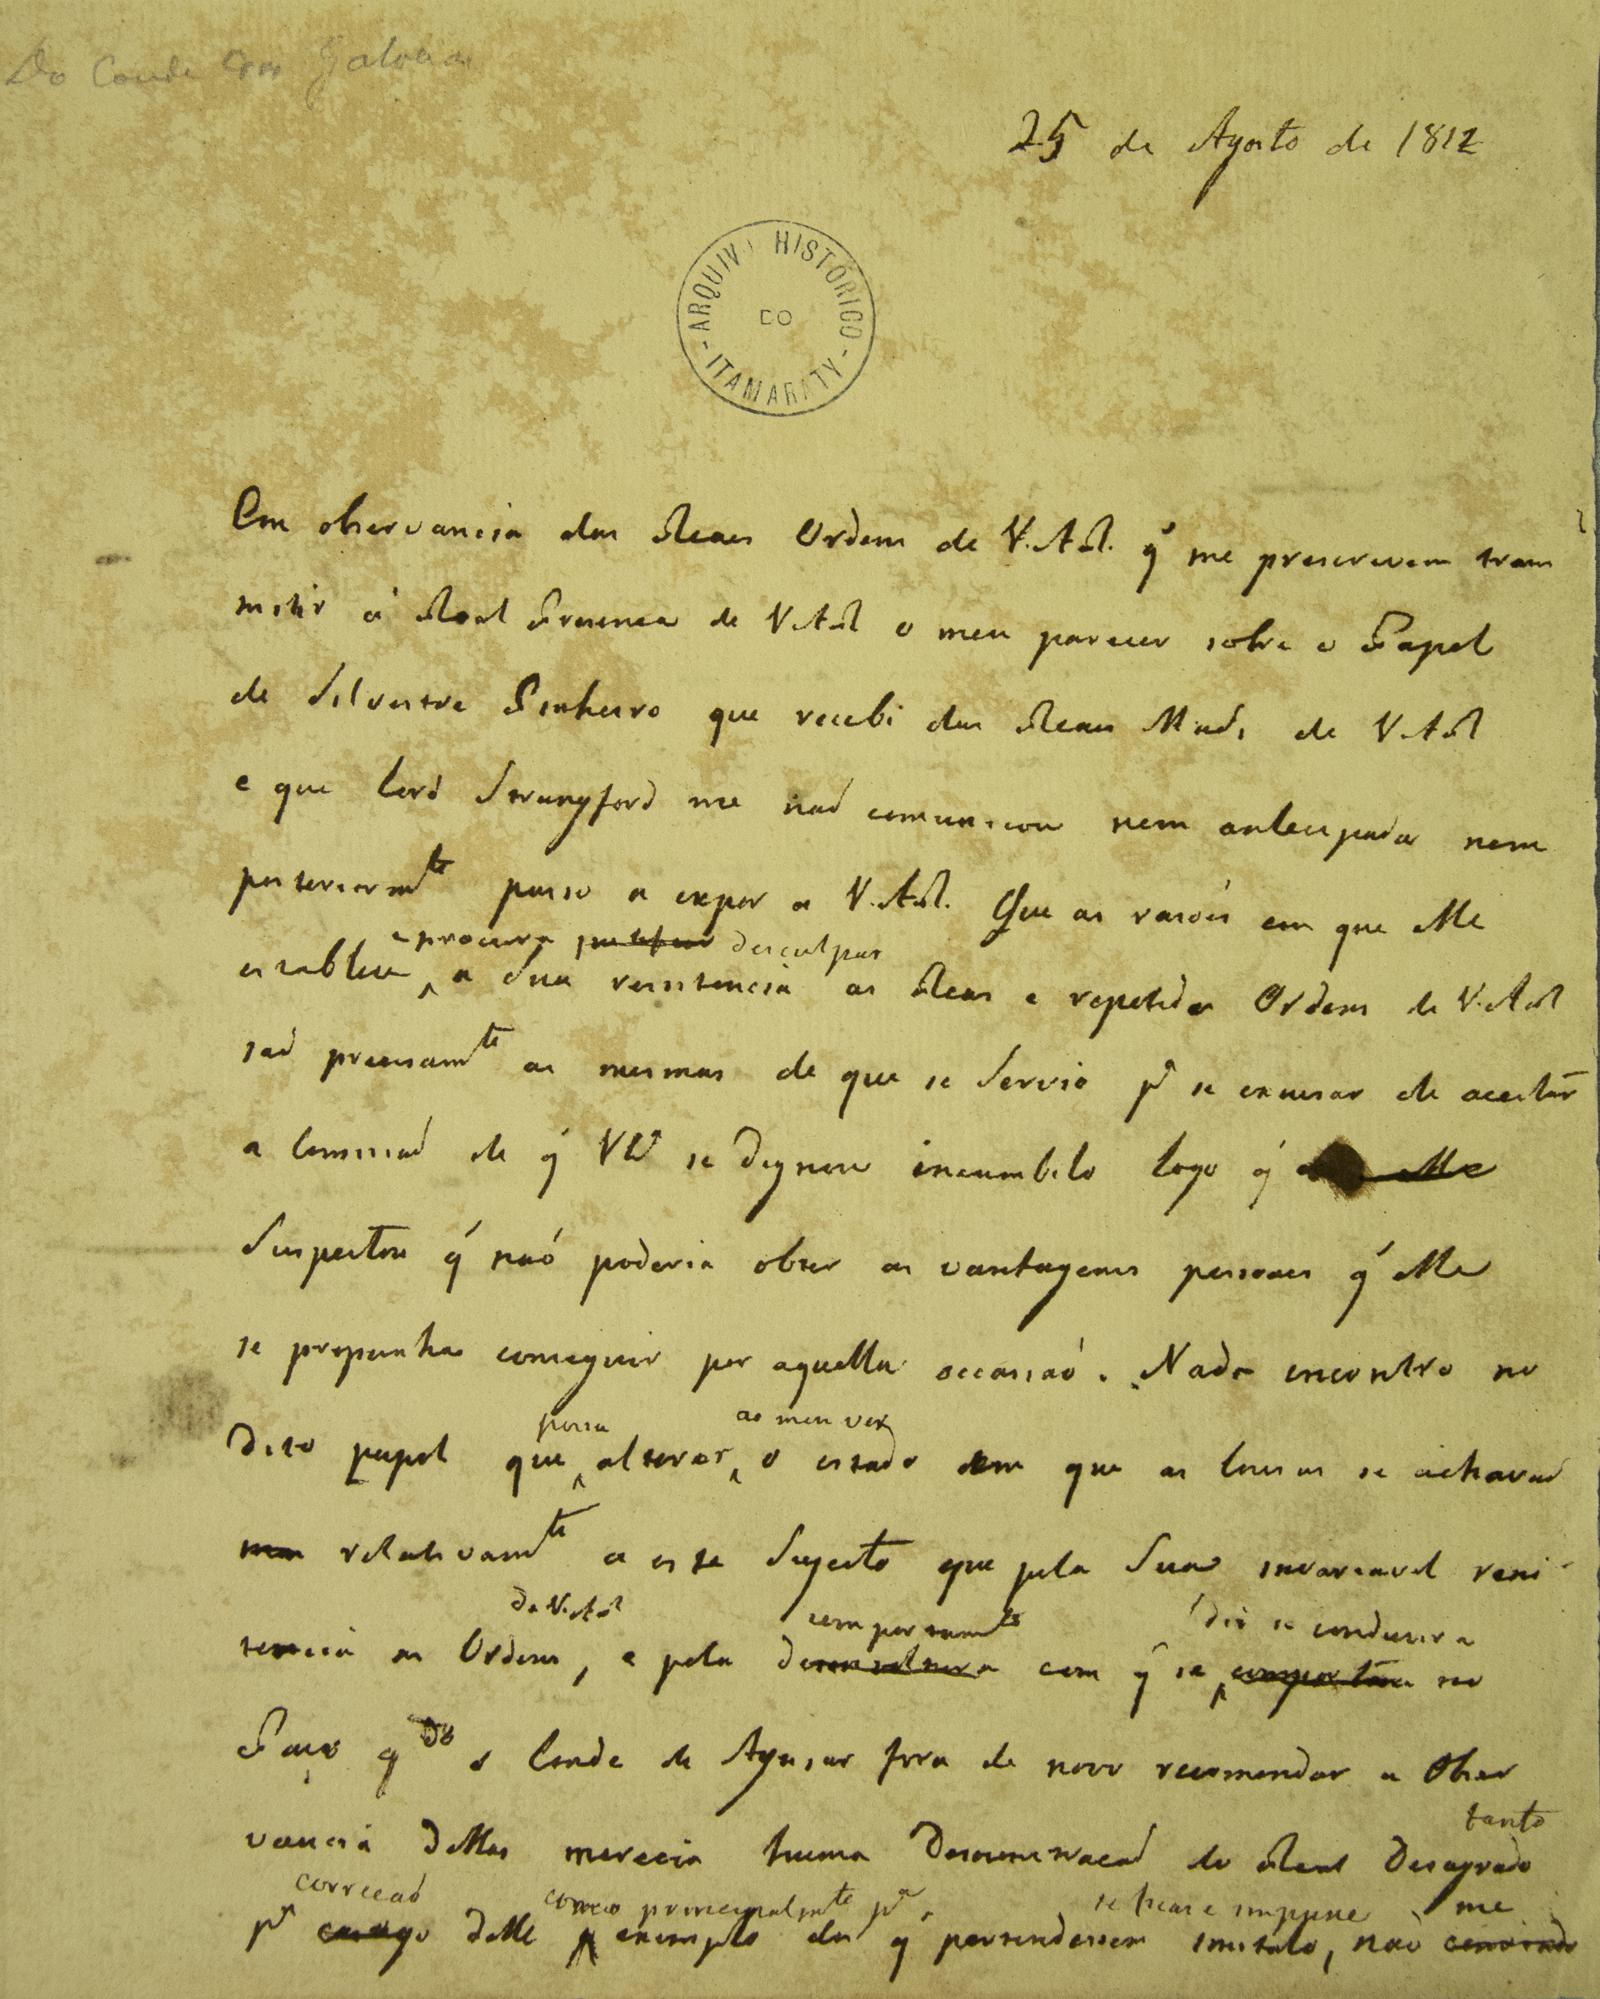 Do Conde das Galveas
25 de Agosto de 1812
ARQUIVO HISTÓRICO DO ITAMARATY
Em observancia das Reaes Ordens de V.A.R. q̃ me prescrevem trans
mitir á Real Presença de V.A.R. o meu parecer sobre o Papel
de Silvestre Pinheiro que recebi das Reaes Maõs de V.A.R.
e que Lord Strangford me naõ comunicou nem antecipada nem
posteriormte passo a expor a V.A.R. Que as rasões em que elle
e procura desculpar
establece a Sua resistencia as Reaes e repetidas Ordens de V.A.R.
saõ precisamte as mesmas de que se Servio pa se excusar de aceitar
a Comissaõ de q̃ V.A.R. se Dignou incumbilo logo q̃ elle
Suspeitou q̃ naó poderia obter as vantagens pessoaes q̃ elle
se propunha conseguir por aquella occasiaó. Nada encontro no
possa ao meu ver
Dito papel que alterar o estado em que as Cousas se achavaõ
relativamte a este Sugeito que pela Sua invariavel reni
de V.A.R. comportamte se conduzira
tencia as Ordens, e pela desenvoltura com q̃ se comportára no
Paço qdo o Conde de Aguiar fora de novo recomendar a Obser
tanto
vancia dellas merecia huma Demonstraçaõ do Real Desagrado
correcaõ como principalmte pa se ficasse impune me
pa castigo delle exemplo dos q̃ pertendessem imitalo, naò